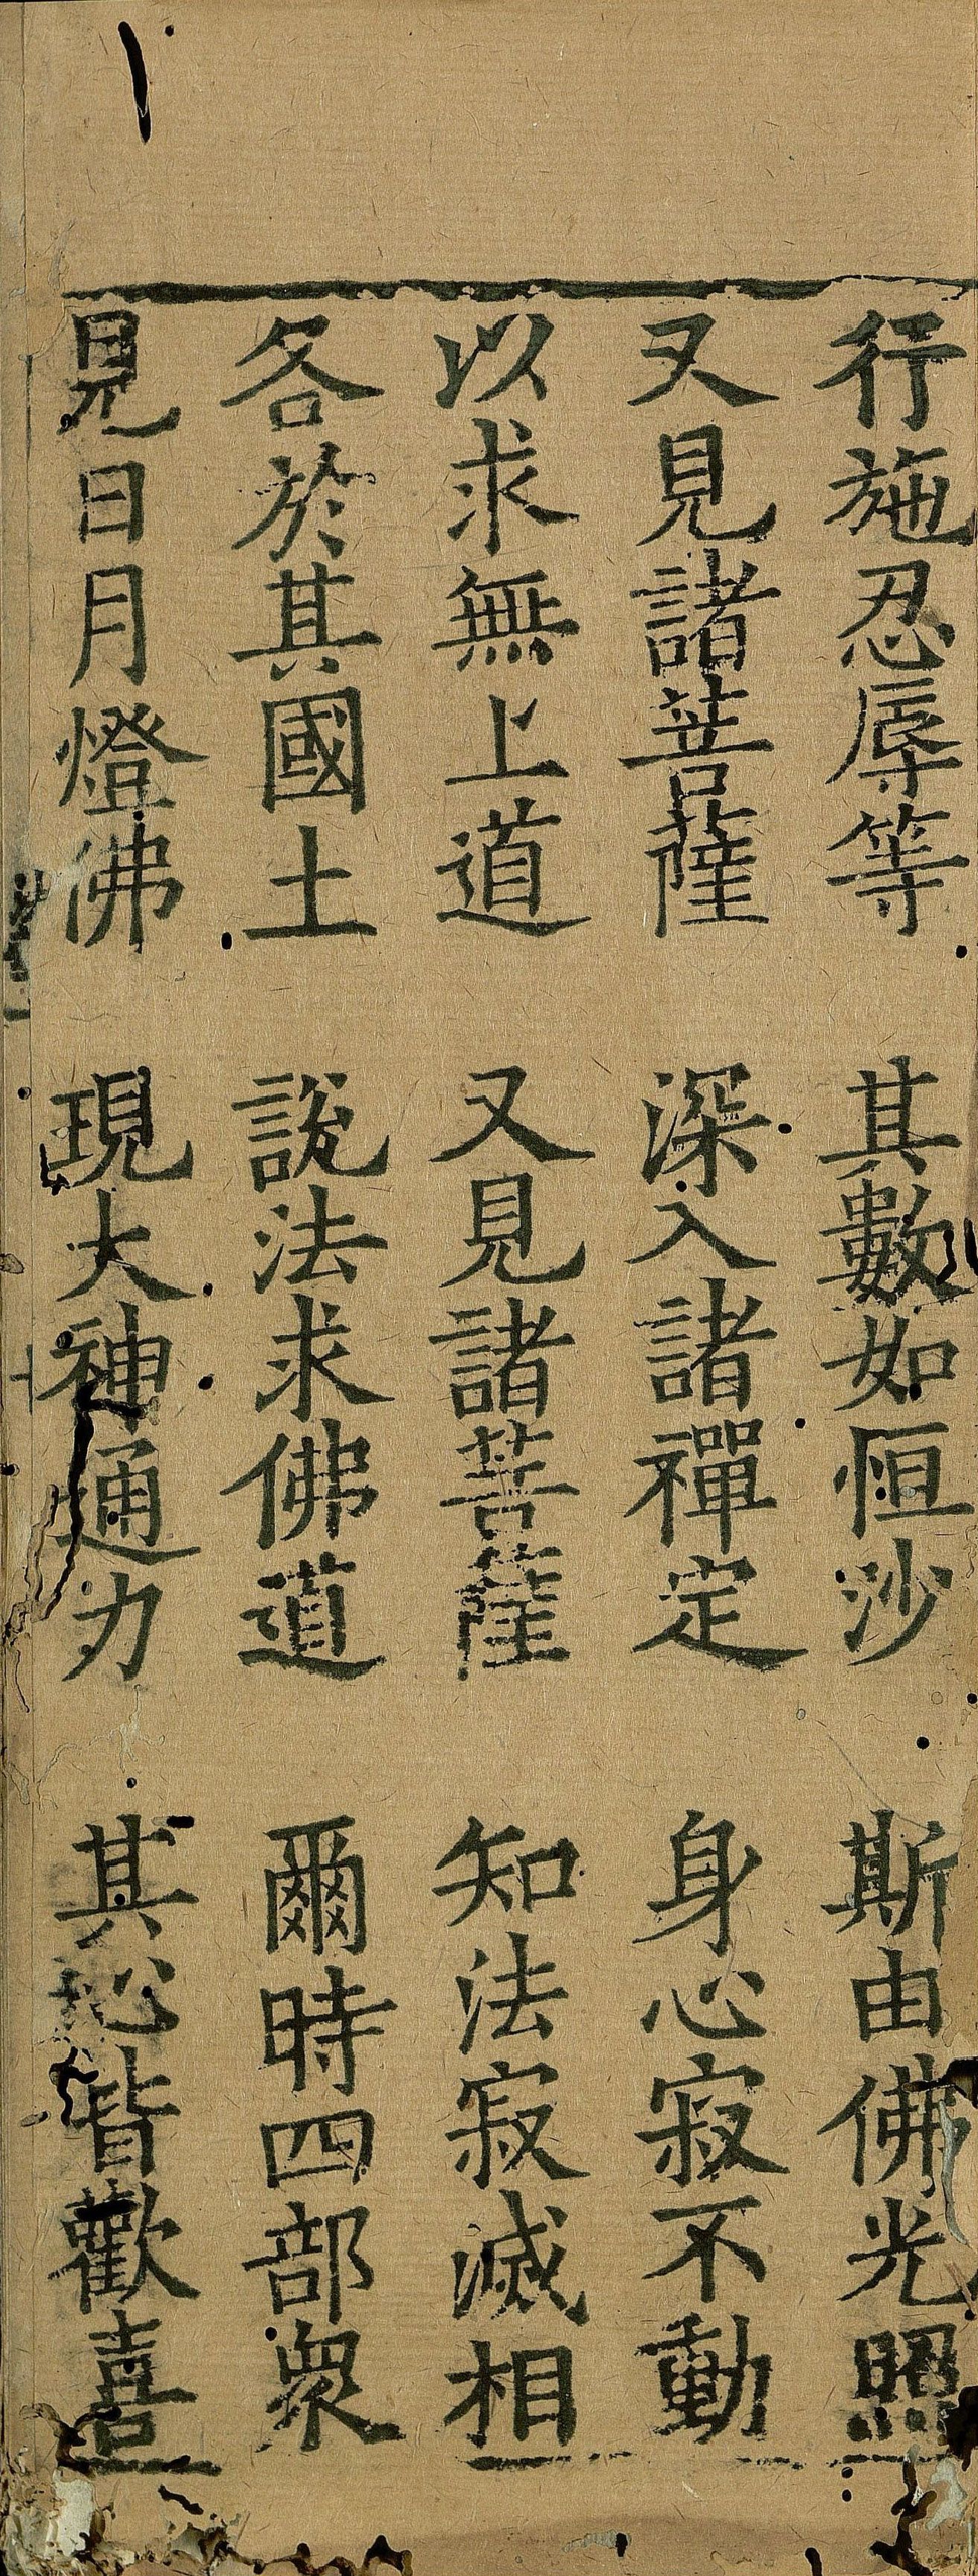 行施忍辱等　其數如恒沙　斯由佛光照
又見諸菩薩　深入諸禪定　身心寂不動
以求無上道　又見諸菩薩　知法寂滅相
各於其國土　說法求佛道　爾時四部衆
見日月燈佛　現大神通力　其心皆歡喜